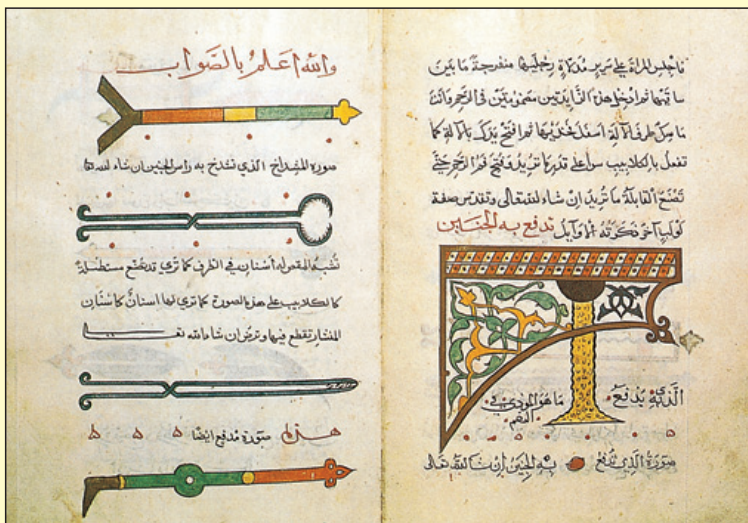 فاجلس المراة على سرير مدلاة رجليها منفرجة ما بين
ساقيها ثم ادخل هذه الزايدتين مضمومتين في الرحم وانت
ماسك طرف الآلة اسفل فخذيها ثم افتح يدك بالآلة كما
تفعل بالكلاليب سواء على قدر ما تريد فتح فم الرحم حتى
تصنع القابلة ما تريد ان شاء الله تعالى وتقدس صفة
لولب آخر ذكرته الاوايل تدفع به الجنين
الذي يدفع ما هو المودي في
صورة الذي تدفع به الجنين ان شا الله تعالى
والله اعلم بالصواب
صورة المشداخ الذي تشدخ به راس الجنين ان شاء الله تعا
تشبه المقص له اسنان في الطرف كما تري قد تصنع مستطيلة
كالكلاليب على هذه الصورة كما تري لها اسنان كاسنان
المنشار تقطع فيها وترض ان شاء الله تعا
هذه صورة مدفع ايضا